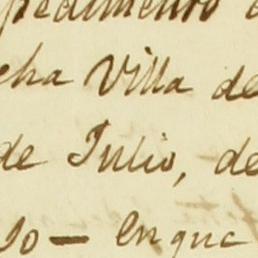 pedimento
cha Villa de
de Julio, de
so — en que